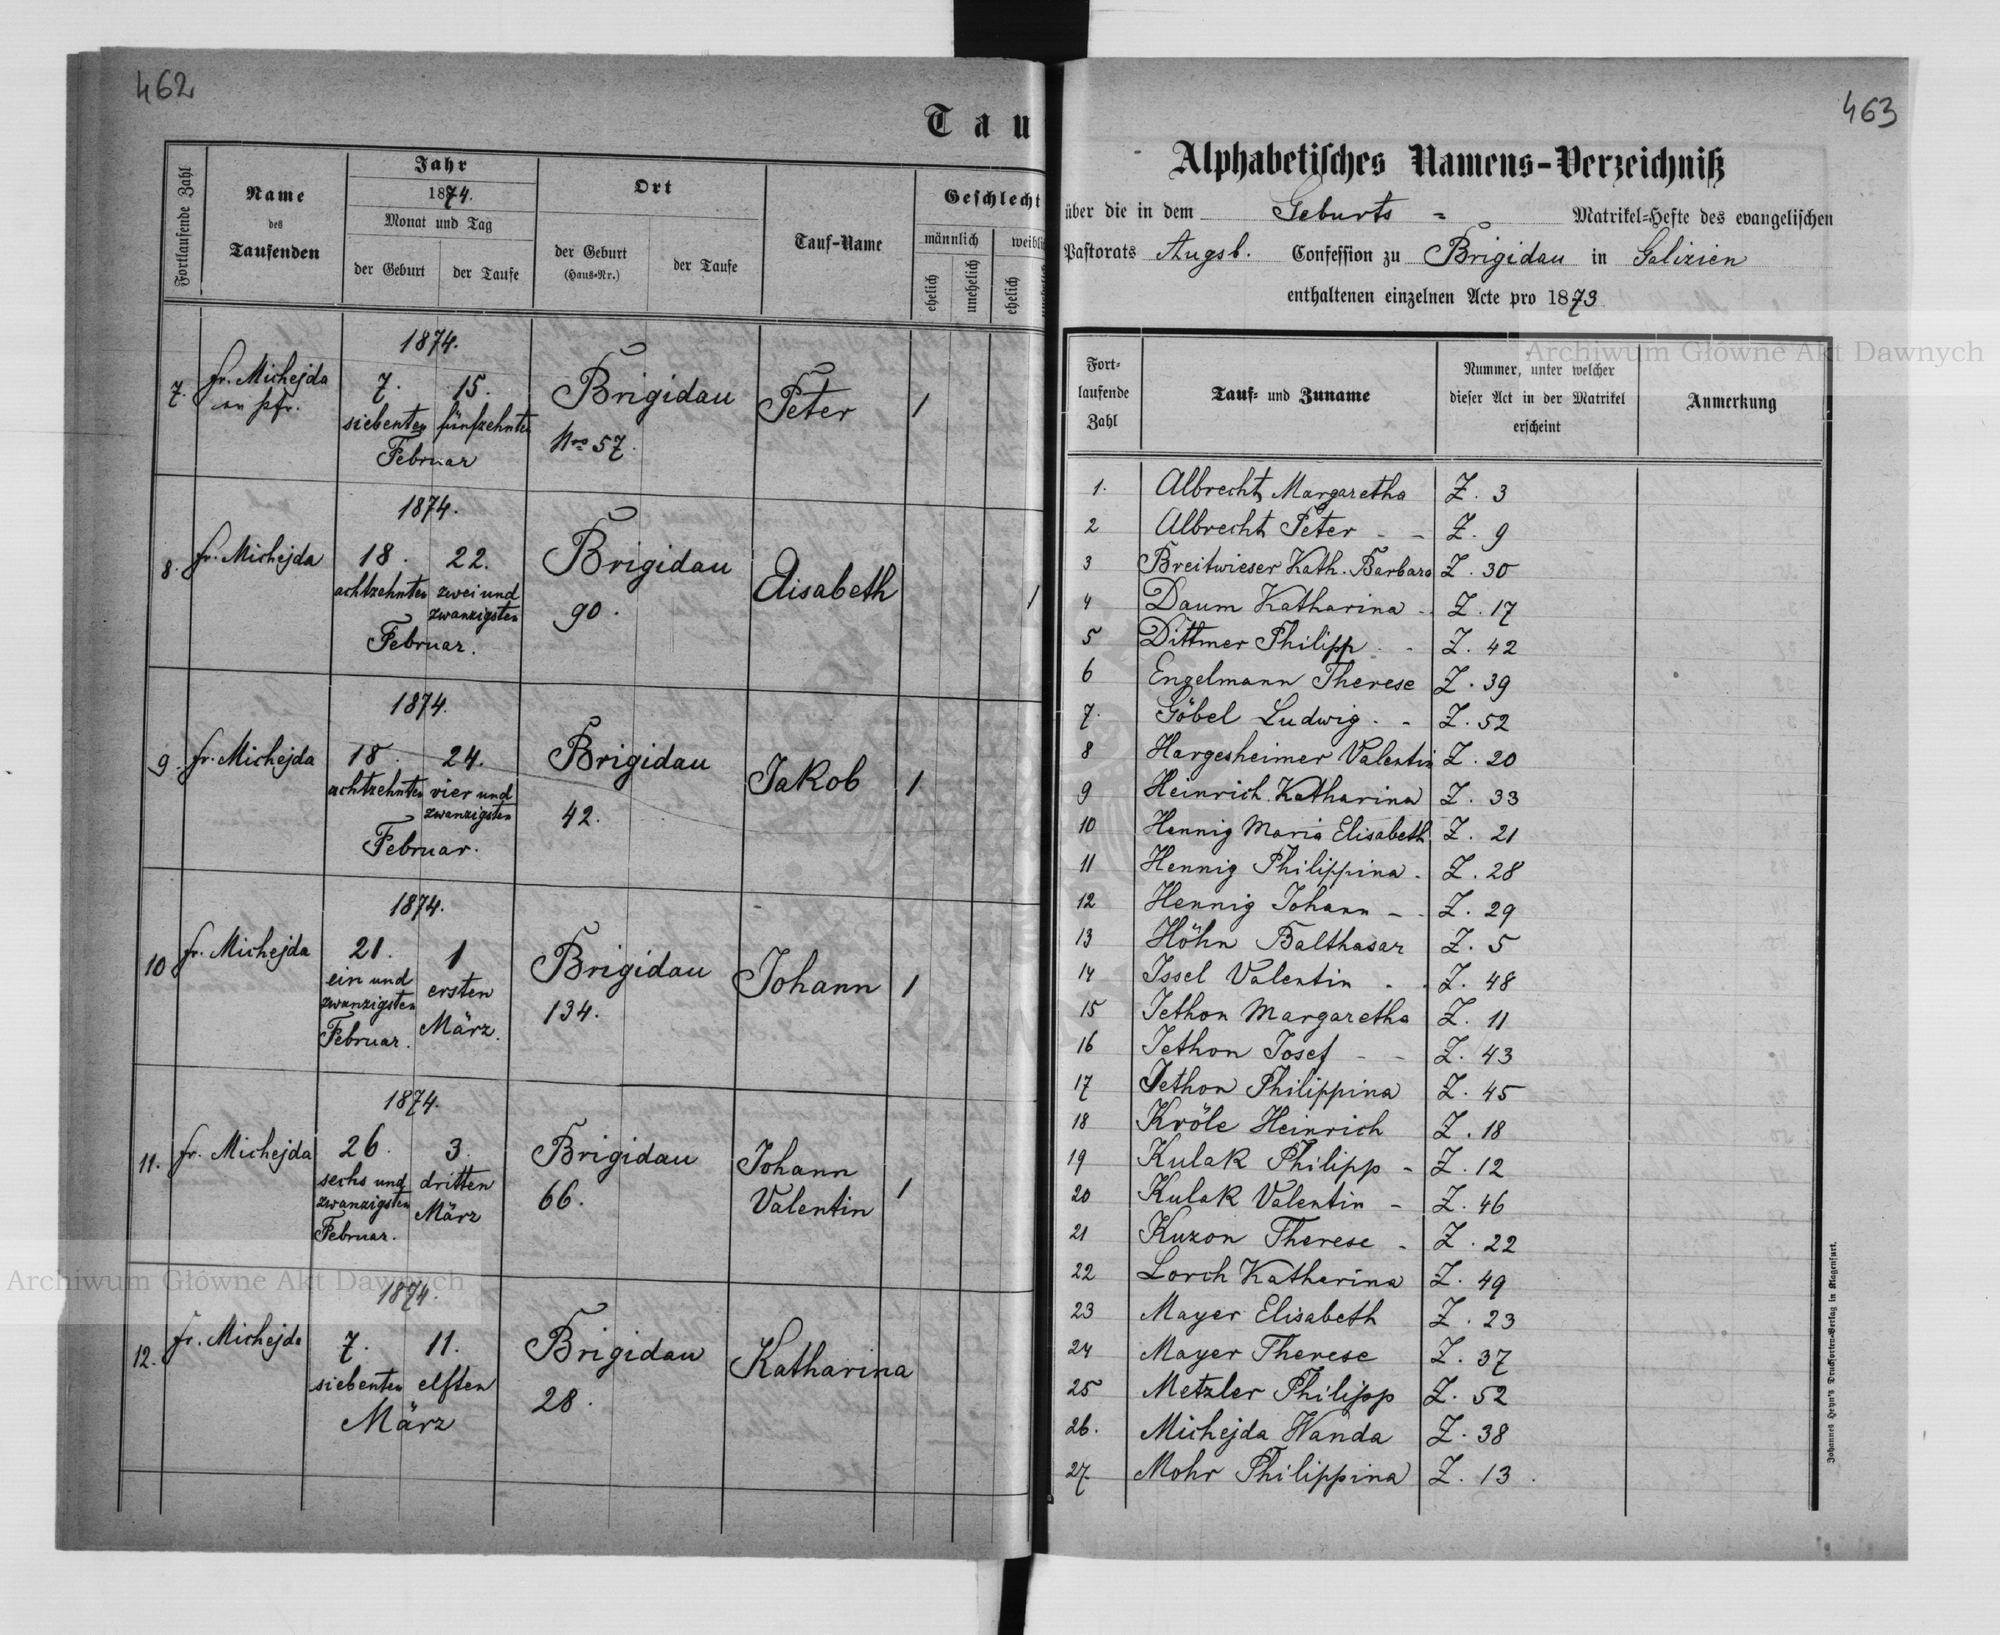 462
Tau
Fortlaufende Zahl
Name
des
Taufenden
Jahr
1874.
Monat und Tag
der Geburt
der Taufe
Ort
der Geburt
(Haus-Nr.)
der Taufe
Tauf-Name
Geschlecht
männlich
weibli
ehelich
unehelich
ehelich
1874.
7. fr. Michejda 7. 15. Brigidau Peter 1
pfr. siebenten fünfzehnten
Februar Nro 57.
1874.
8. fr. Michejda 18. 22. Brigidau Elisabeth 1
achtzehnten zwei und 90.
zwanzigsten
Februar.
1874.
9. fr. Michejda 18. 24. Brigidau Jakob 1
achtzehnten vier und 42.
zwanzigsten
Februar.
1874.
10 fr. Michejda 21. 1 Brigidau Johann 1
ein und ersten 134.
zwanzigsten März.
Februar.
1874.
11. fr. Michejda 26. 3. Brigidau Johann 1
sechs und dritten 66. Valentin
zwanzigsten März
Februar.
1874.
12. fr. Michejda 7. 11. Brigidau Katharina
siebenten elften 28.
März
Archiwum Główne Akt Dawnych
463
Alphabetisches Namens-Verzeichniß
über die in dem Geburts - Matrikel-Hefte des evangelischen
Pastorats Augsb. Confession zu Brigidau in Galizien
enthaltenen einzelnen Acte pro 1873
Archiwum Główne Akt Dawnych
Fort-
laufende
Zahl
Tauf- und Zuname
Nummer, unter welcher
dieser Act in der Matrikel
erscheint
Anmerkung
1. Albrecht Margaretha Z. 3
2 Albrecht Peter - - Z. 9
3 Breitwieser Kath. Barbara Z. 30
4 Daum Katharina - Z. 17
5 Dittmer Philipp - - Z. 42
6 Engelmann Therese Z. 39
7. Göbel Ludwig. - Z. 52
8 Hargesheimer Valentin Z. 20
9 Heinrich Katharina Z. 33
10 Hennig Maria Elisabeth Z. 21
11 Hennig Philippina. Z. 28
12 Hennig Johann - - Z. 29
13 Höhn Balthasar Z. 5
14 Issel Valentin - - Z. 48
15 Jethon Margaretha Z. 11
16 Jethon Josef - - Z. 43
17 Jethon Philippina Z. 45
18 Kröle Heinrich Z. 18
19 Kulak Philipp - Z. 12
20 Kulak Valentin - Z. 46
21 Kuzon Therese - Z. 22
22 Lorch Katharina Z. 49
23 Mayer Elisabeth Z. 23
24 Mayer Therese Z. 37
25 Metzler Philipp Z. 52
26. Michejda Wanda Z. 38
27 Mohr Philippina Z. 13.
Johannes Heyn's Drucksorten-Verlag in Klagenfurt.